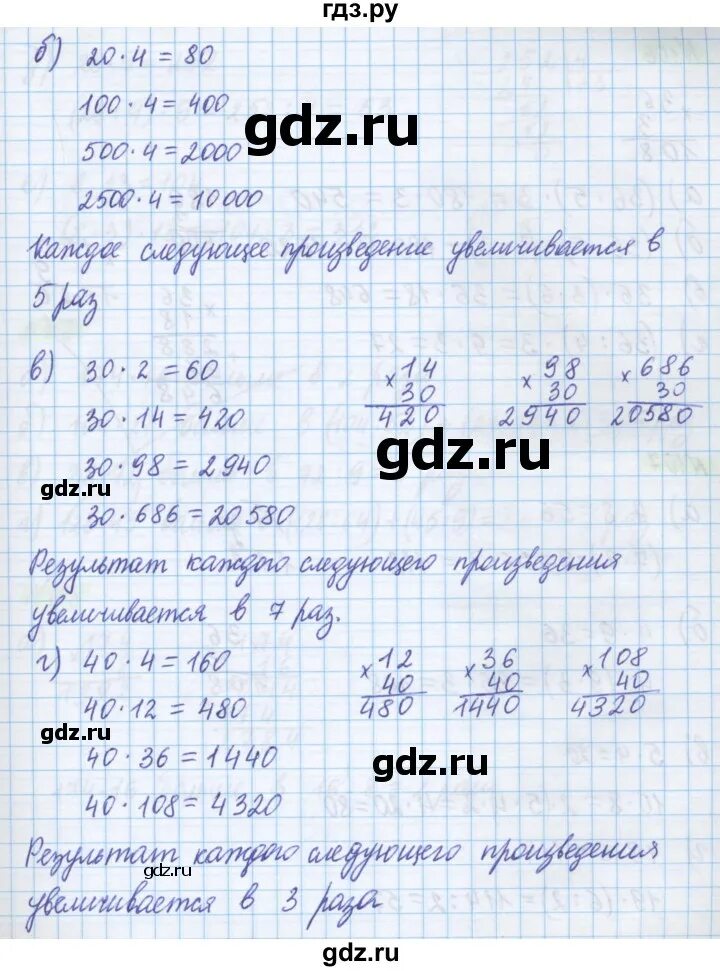 гдз.ру
б) 20 · 4 = 80
100 · 4 = 400
gdz.ru
500 · 4 = 2000
2500 · 4 = 10000
Каждое следующее произведение увеличивается в
5 раз
в) 30 · 2 = 60
30 · 14 = 420
30 · 98 = 2940
30 · 686 = 20580
× 14
30
420
× 98
30
2940
× 686
30
20580
gdz.ru
gdz.ru
Результат каждого следующего произведения
увеличивается в 7 раз.
г) 40 · 4 = 160
40 · 12 = 480
40 · 36 = 1440
40 · 108 = 4320
× 12
40
480
× 36
40
1440
× 108
40
4320
gdz.ru
gdz.ru
Результат каждого следующего произведения
gdz.ru
увеличивается в 3 раза
gdz.ru